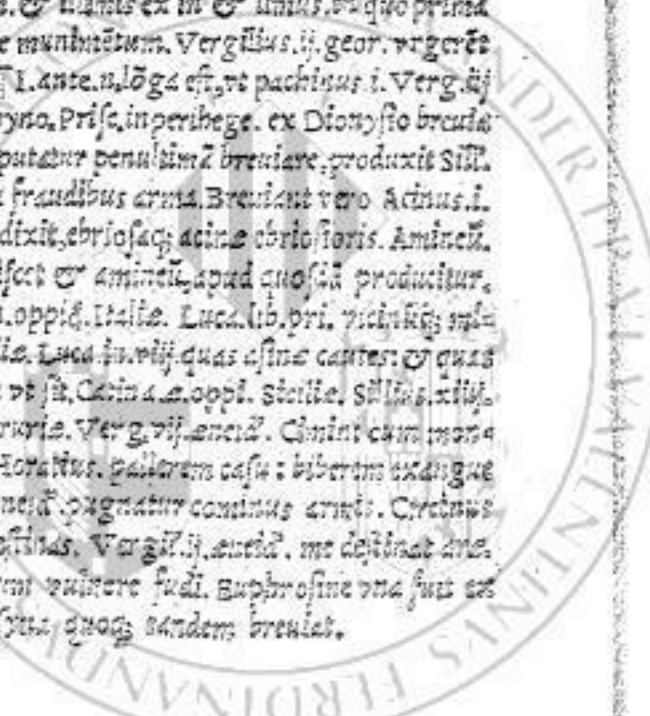 n. & manis ex in & unius. ut quo prima
e munimētum. Vergilius. ij. geor. vrgerēt
I. ante. n. lōga est, vt pachinus. i. Verg. iij
yno. Prisc. in peribege. ex Dionysio breuia
putatur penultimā breuiare, produxit Sill.
fraudibus arma. Breuiant vero Acinus. i.
dixit, ebriosaq; acinæ ebriosioris. Amineū.
fect & amineū, apud quosdā producitur.
oppid. Italiæ. Luca. lib. pri.
liæ. Luca. in. viij. quas asinæ cautes: & quas
vt sit. Catina. æ. oppi. Siciliæ. Sillius. xiiij.
ruriæ. Verg. vij. æneid. Cimini cum mon
Horatius. pallerem casu: biberem exangue
neid. pugnatur cominus armis. Circinus
stinas. Vergil. ij. æneid. me destinat aræ.
vulnere fudi. Euphrosine vna fuit ex
quoq; tandem breuiat.
NDER TRAL VALENTINVS FERDINANDVS